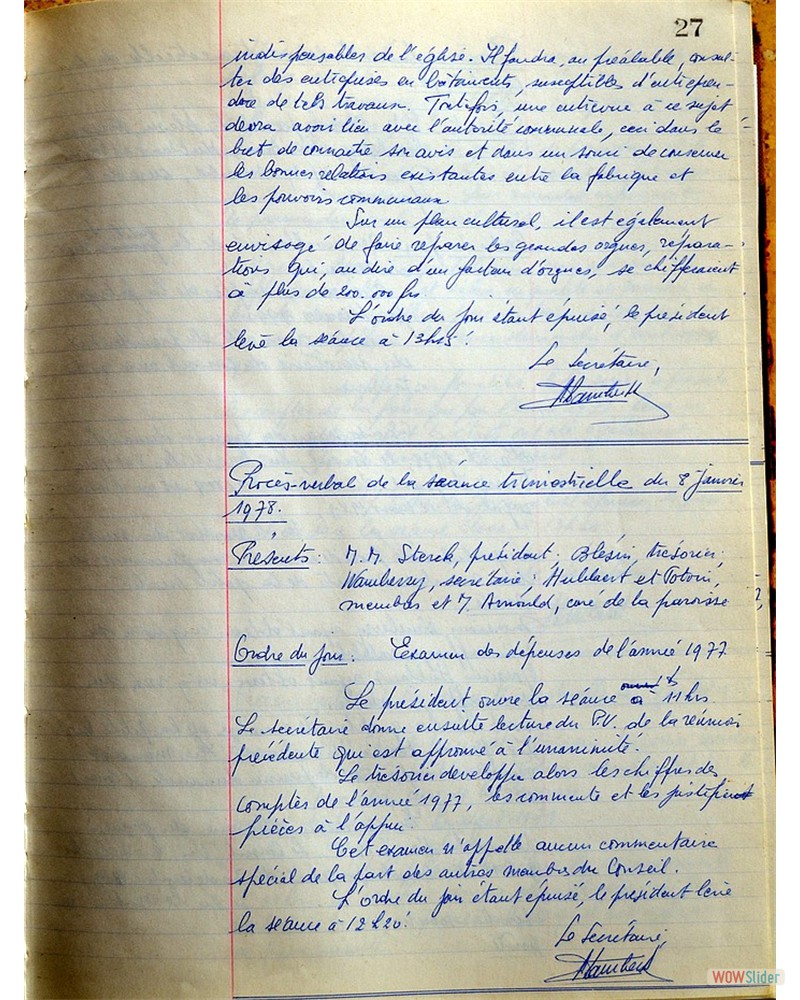 27
indispensables de l'église. Il faudra, au préalable, consul-
ter des entreprises en bâtiments, susceptibles d'entrepren-
dre de tels travaux. Toutefois, une entrevue à ce sujet
devra avoir lieu avec l'autorité communale, ceci dans le
but de connaître son avis et dans un souci de conserver
les bonnes relations existantes entre la fabrique et
les pouvoirs communaux.
Sur un plan culturel, il est également
envisagé de faire réparer les grandes orgues, répara-
tions qui, au dire d'un facteur d'orgues, se chiffreraient
à plus de 200.000 frs.
L'ordre du jour étant épuisé, le président
lève la séance à 13h15.
Le Secrétaire,
Procès-verbal de la séance trimestrielle du 8 janvier
1978.
Présents : M.M. Sterck, président; Blésin, trésorier;
secrétaire; Hubbart et
membres et M. Arnould, curé de la paroisse
Ordre du jour : Examen des dépenses de l'année 1977
Le président ouvre la séance à 11 hrs.
Le secrétaire donne ensuite lecture du P.V. de la réunion
précédente qui est approuvé à l'unanimité.
Le trésorier développe alors les chiffres des
comptes de l'année 1977, les commente et les justifie
pièces à l'appui.
Cet examen n'appelle aucun commentaire
spécial de la part des autres membres du Conseil.
L'ordre du jour étant épuisé, le président lève
la séance à 12h20.
Le Secrétaire,
WOWSlider